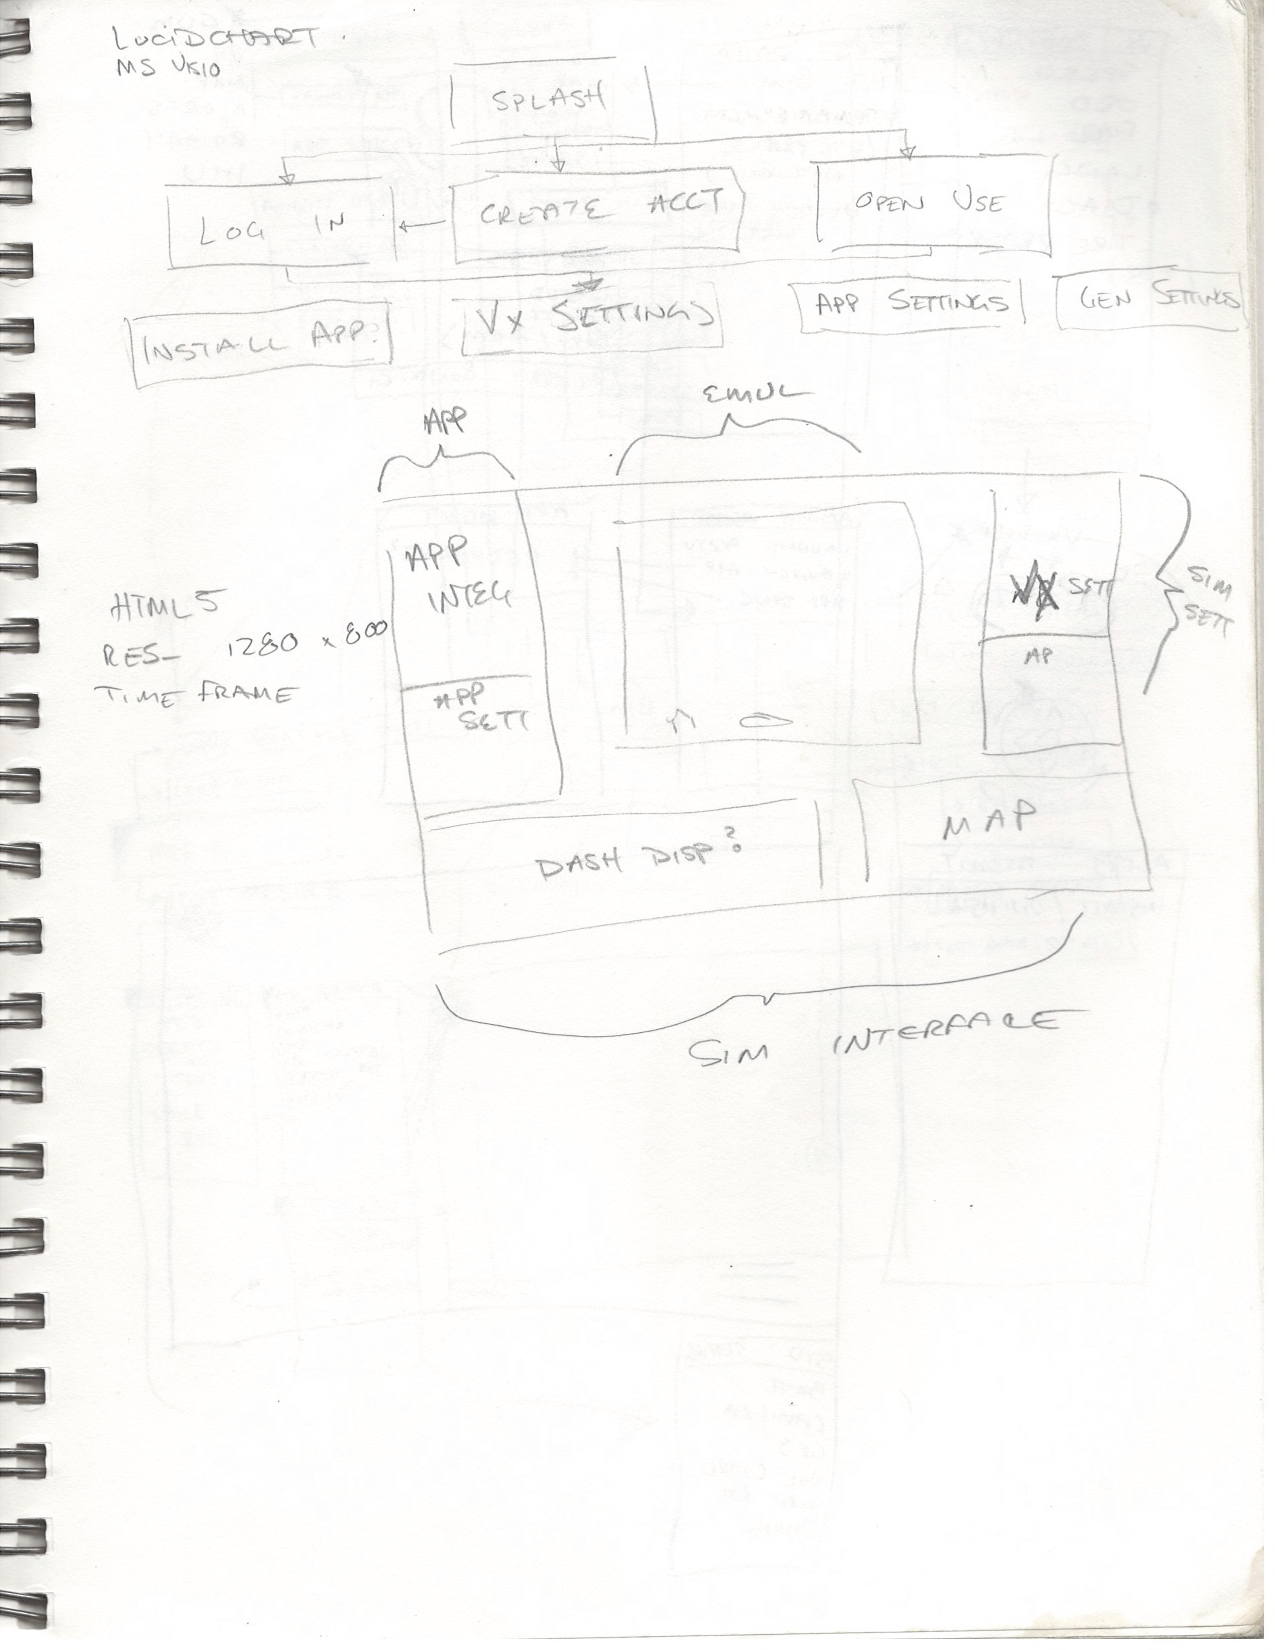 LUCIDCHART
MS VISIO
SPLASH
LOG IN
CREATE ACCT
OPEN USE
INSTALL APP?
VX SETTINGS
APP SETTINGS
GEN SETTINGS
APP
EMUL
APP
INTEG
VX SETT
SIM
SETT
HTML5
RES- 1280 x 800
TIME FRAME
AP
APP
SETT
DASH DISP?
MAP
SIM INTERFACE